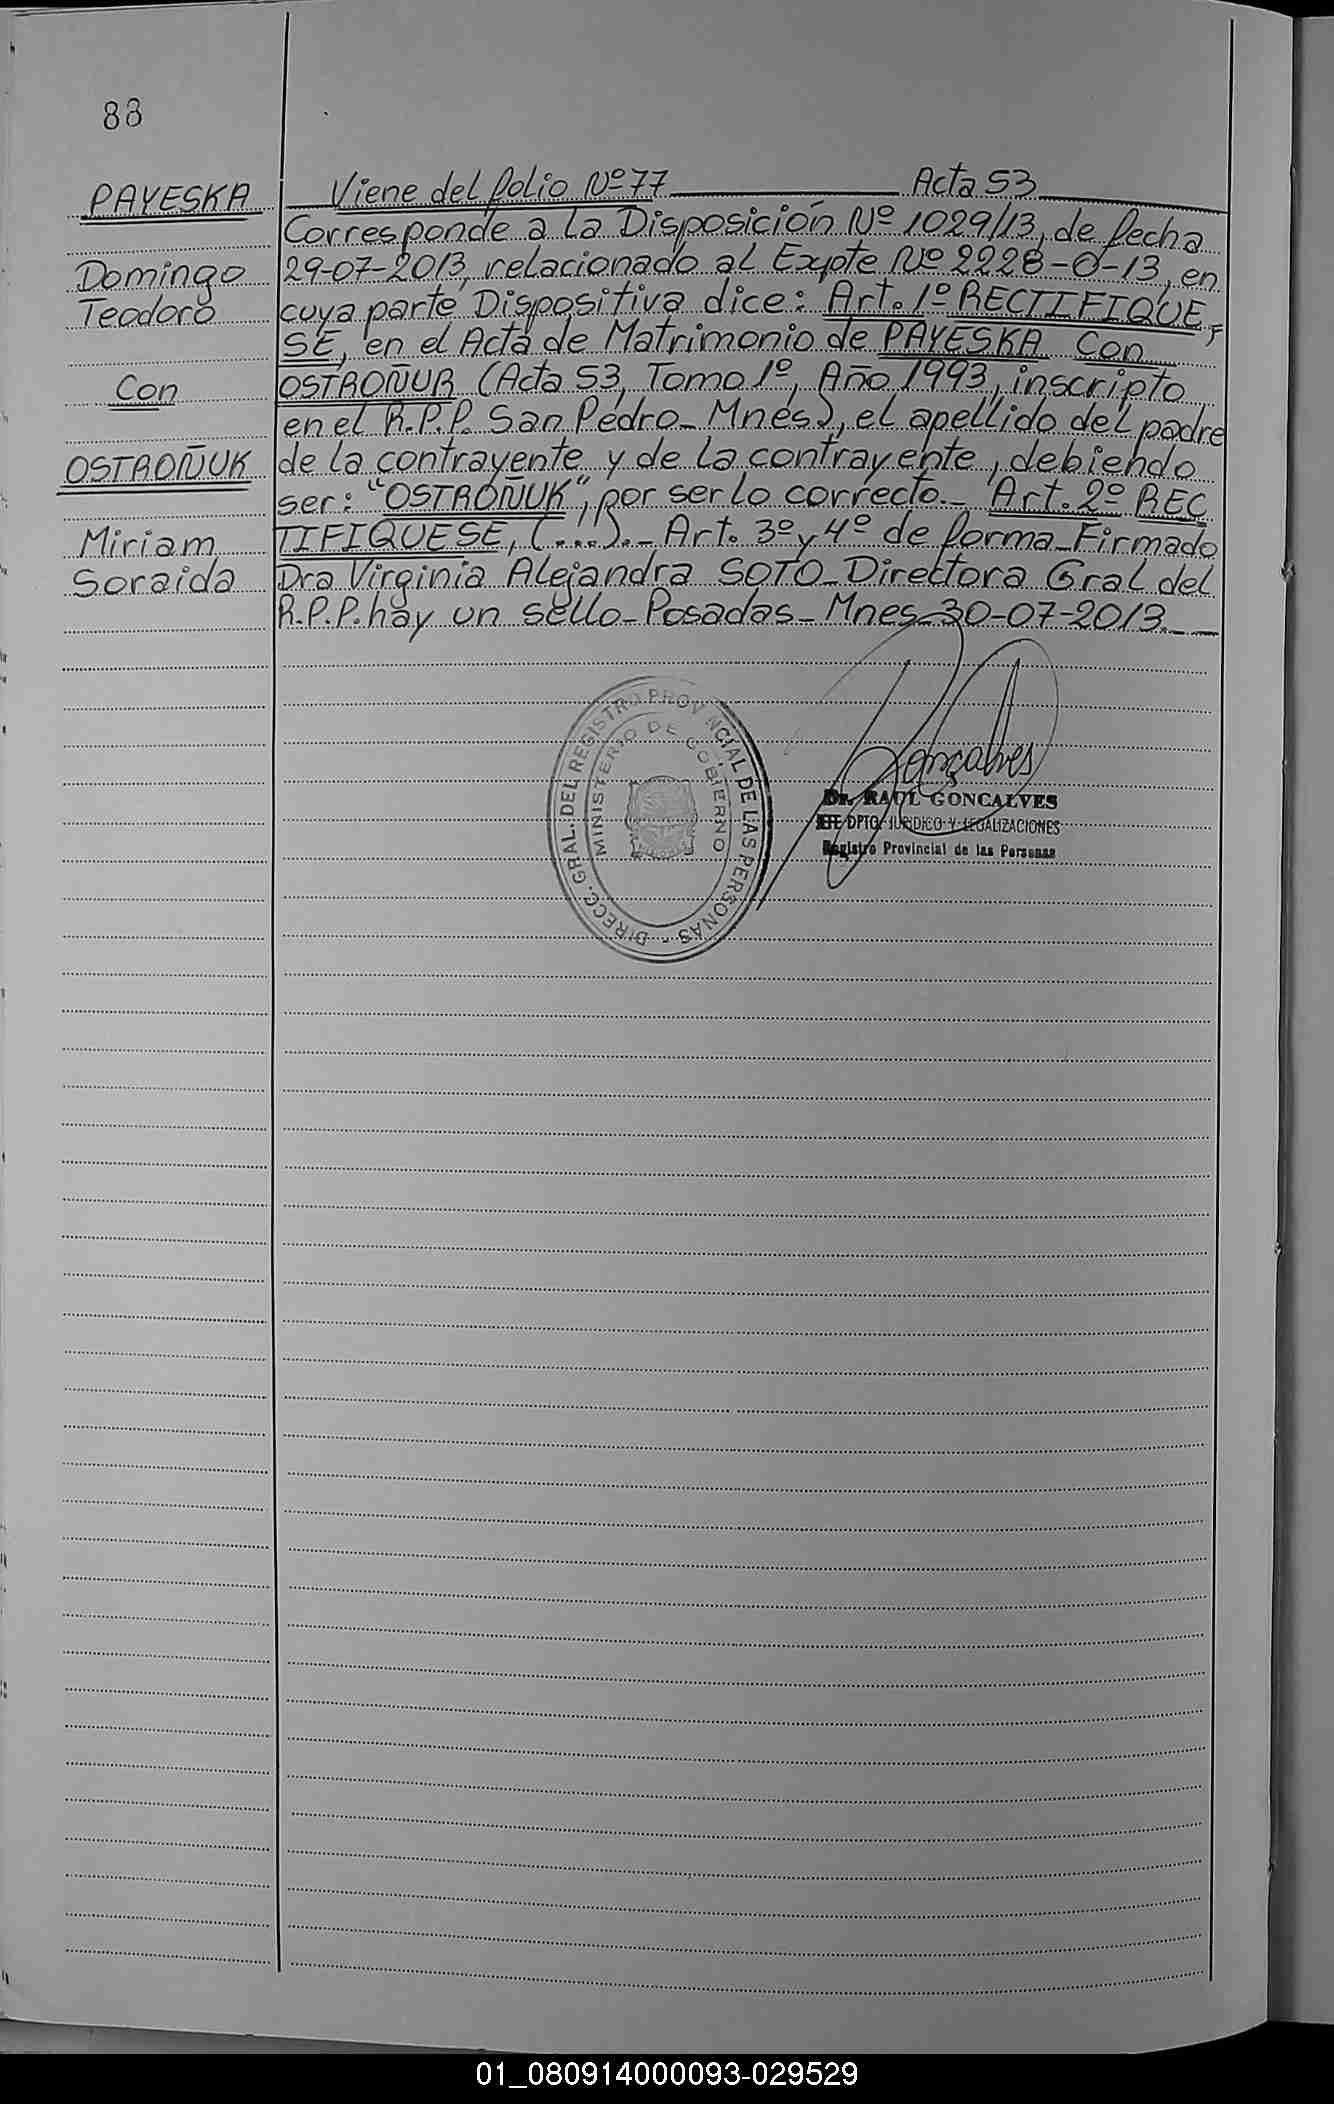 88
PAYESKA
Domingo
Teodoro
Con
OSTROÑUK
Miriam
Soraida
Viene del folio Nº 77 Acta 53
Corresponde a la Disposición Nº 1029/13, de fecha
29-07-2013, relacionado al Expte Nº 2228-O-13, en
cuya parte Dispositiva dice: Art. 1º RECTIFIQUE,
SE, en el Acta de Matrimonio de PAYESKA Con
OSTROÑUR (Acta 53, Tomo 1º, Año 1993, inscripto
en el R.P.P. San Pedro_ Mnes), el apellido del padre
de la contrayente y de la contrayente, debiendo
ser: "OSTROÑUK", por ser lo correcto._ Art. 2º REC
TIFIQUESE, (...)._ Art. 3º y 4º de forma_Firmado
Dra Virginia Alejandra SOTO_Directora Gral del
R.P.P. hay un sello_Posadas_Mnes_30-07-2013.__
DIRECC. GRAL. DEL REGISTRO PROVINCIAL DE LAS PERSONAS -
MINISTERIO DE GOBIERNO
Gonçalves
Dr. RAUL GONCALVES
JEFE DPTO. JURIDICO Y LEGALIZACIONES
Registro Provincial de las Personas
01_080914000093-029529